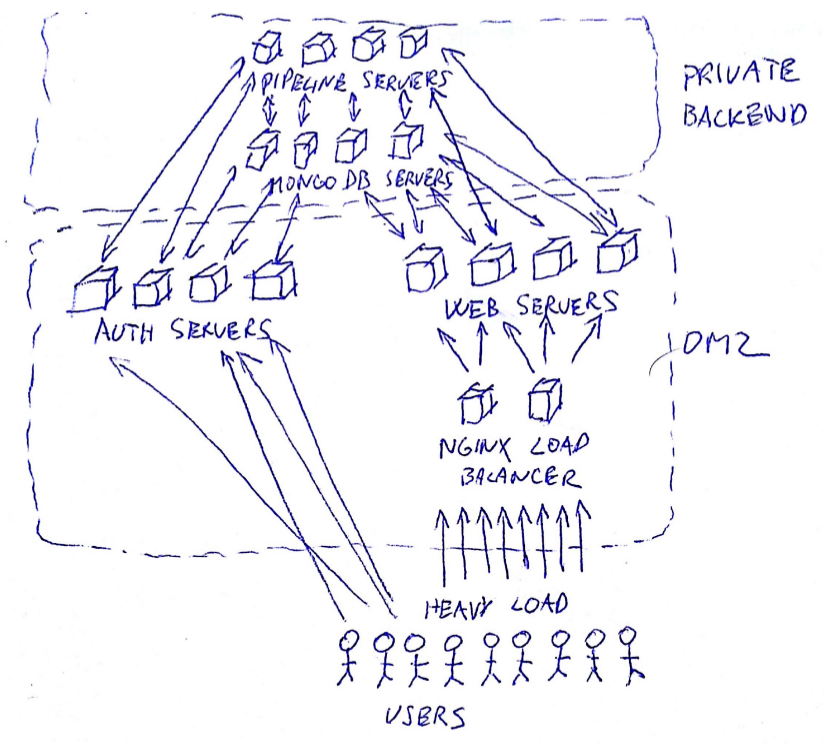 PIPELINE SERVERS
PRIVATE
BACKEND
MONGO DB SERVERS
WEB SERVERS
AUTH SERVERS
DMZ
NGINX LOAD
BALANCER
HEAVY LOAD
USERS